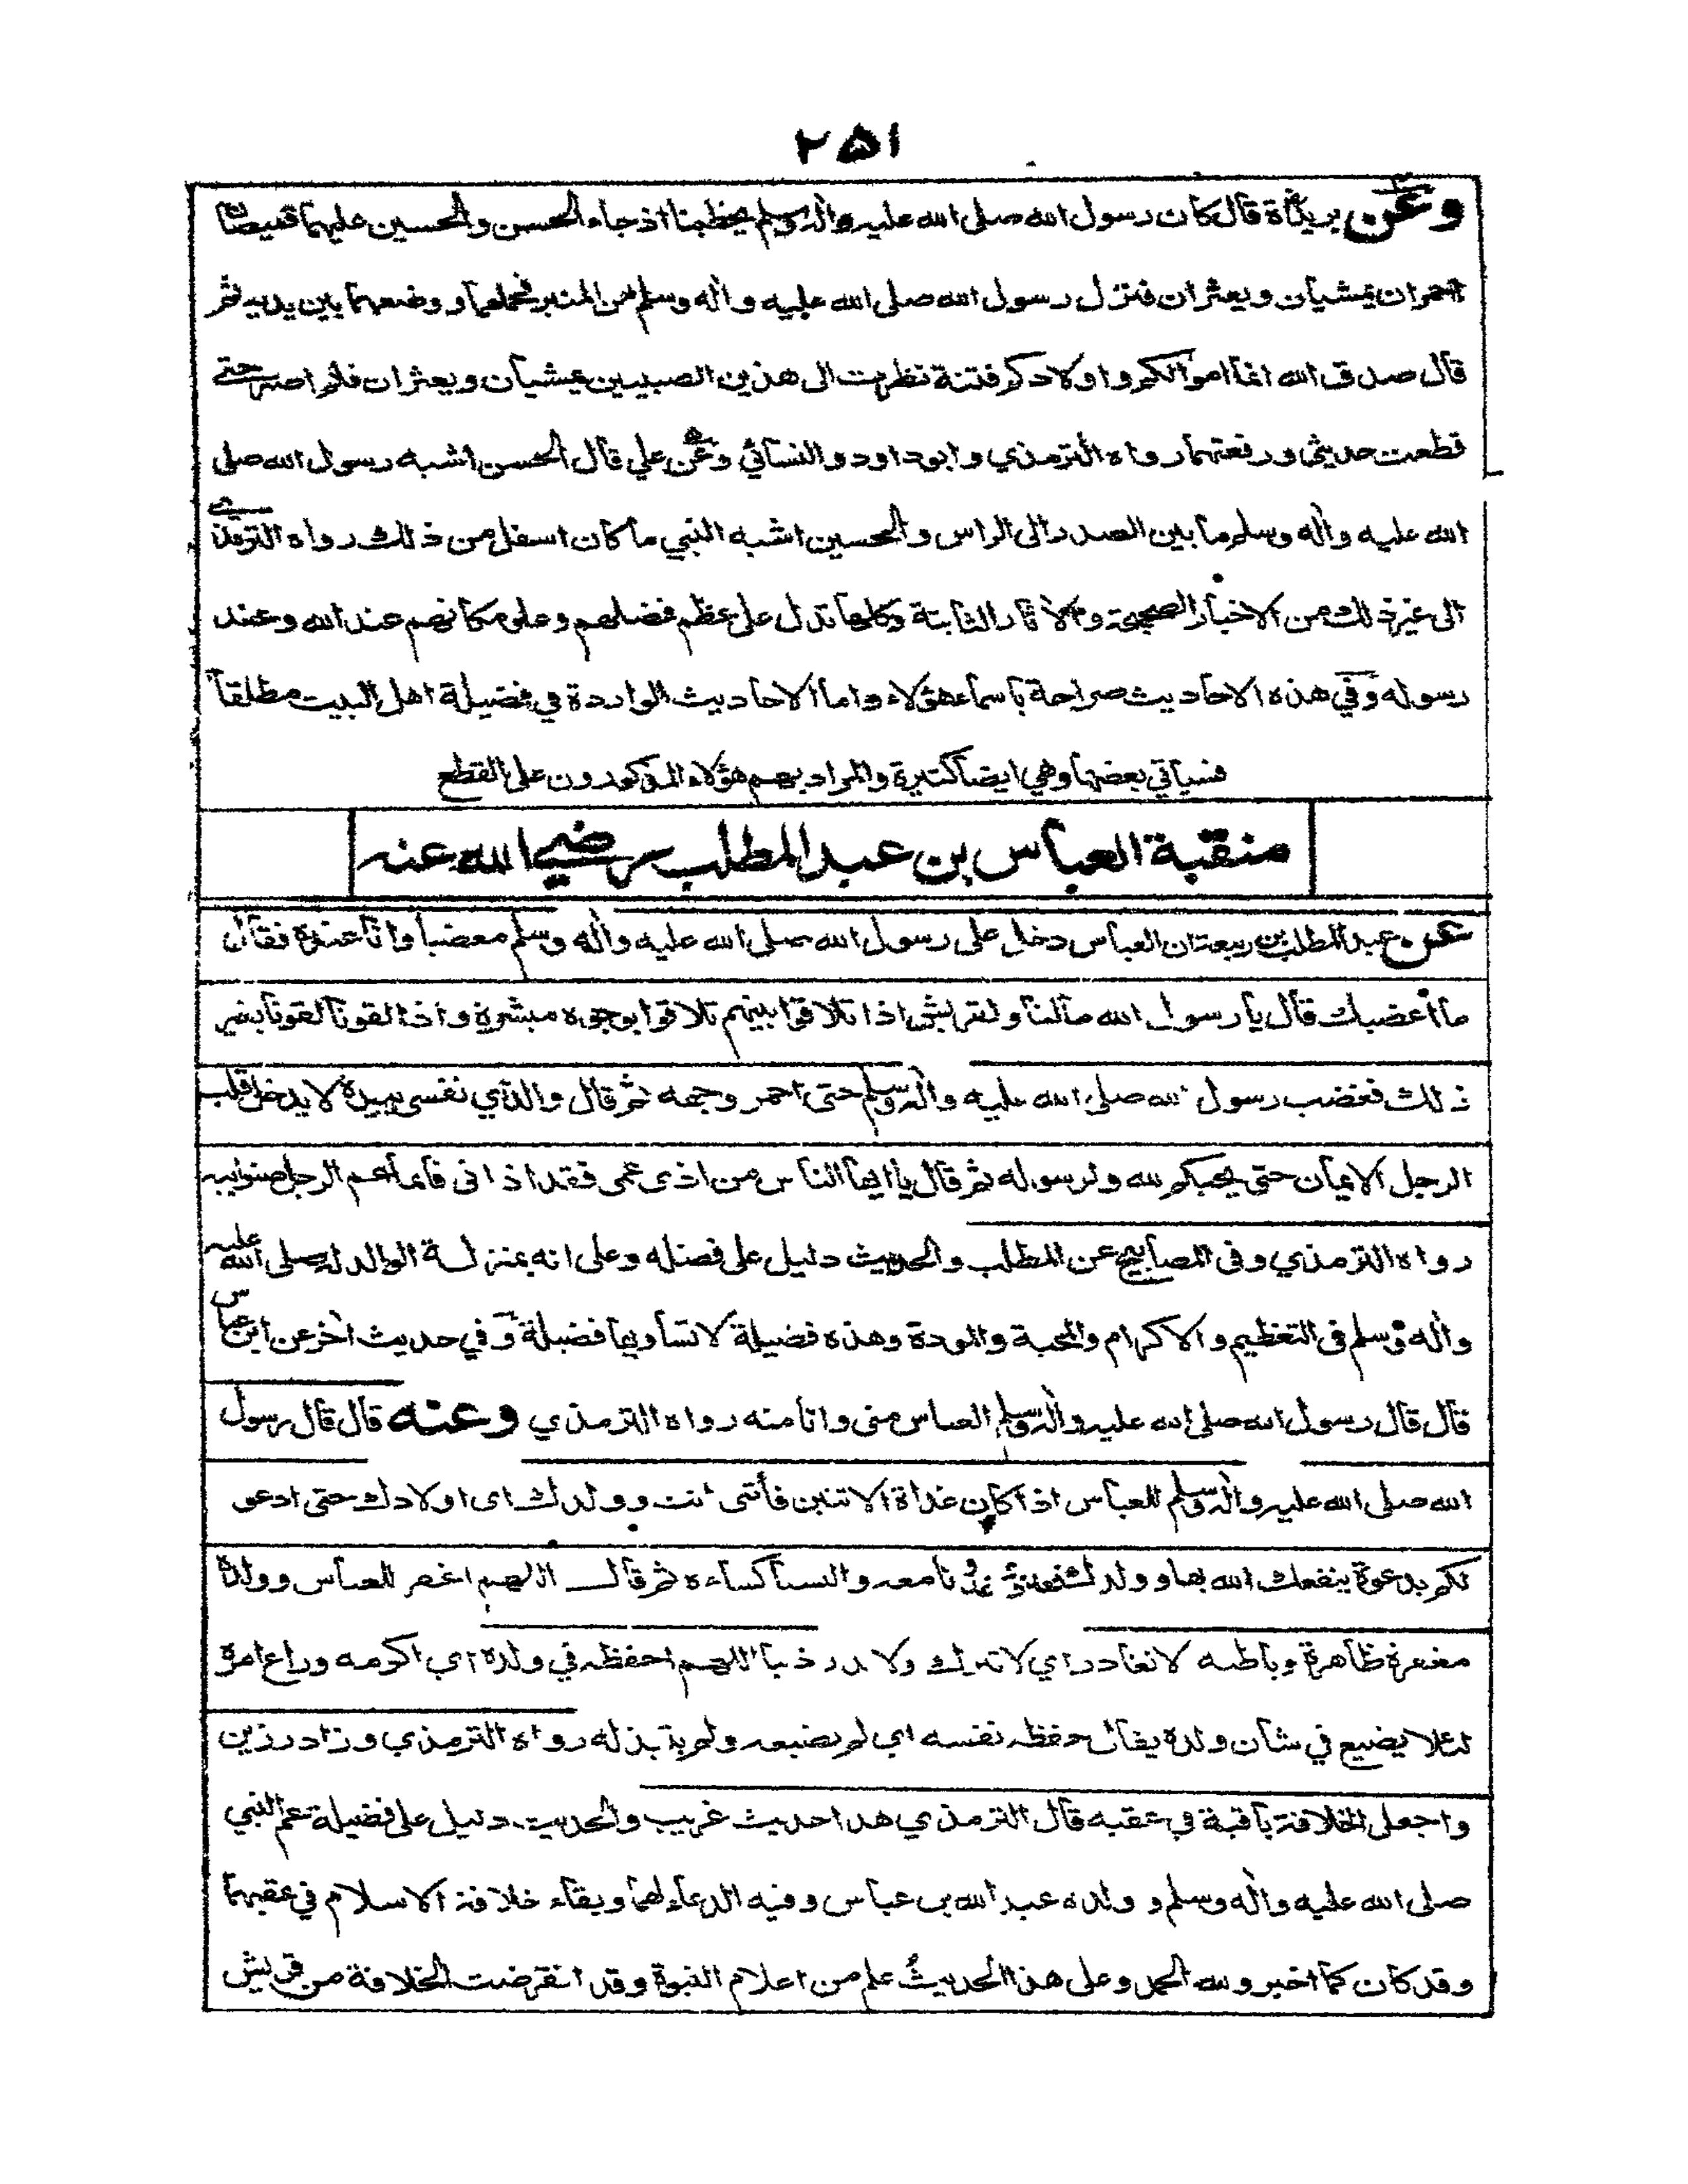 ٢٥١
وعن بريدة قال كان رسول الله صلى الله عليه واله وسلم يخطبنا اذ جاء الحسن والحسين عليهما قميصان
احمران يمشيان ويعثران فنزل رسول الله صلى الله عليه واله وسلم من المنبر فحملهما ووضعهما بين يديه ثم
قال صدق الله انما اموالكم واولادكم فتنة نظرت الى هذين الصبيين يمشيان ويعثران فلم اصبر حتى
قطعت حديثي ورفعتهما رواه الترمذي وابوداود والنسائي وعن علي قال الحسن اشبه رسول الله صلى
الله عليه واله وسلم ما بين الصدر الى الراس والحسين اشبه النبي ما كان اسفل من ذلك رواه الترمذي
الى غير ذلك من الاخبار الصحيحة والاثار الثابتة وكلها تدل على عظم فضلهم وعلو مكانهم عند الله وعند
رسوله وفي هذه الاحاديث صراحة باسماء هؤلاء واما الاحاديث الواردة في فضيلة اهل البيت مطلقا
فسياتي بعضها وهي ايضا كثيرة والمراد بهم هؤلاء المذكورون على القطع
منقبة العباس بن عبد المطلب رضي الله عنه
عن عبد المطلب بن ربيعة ان العباس دخل على رسول الله صلى الله عليه واله وسلم مغضبا وانا عنده فقال
ما أغضبك قال يا رسول الله مالنا ولقريش اذا تلاقوا بينهم تلاقوا بوجوه مبشرة واذا لقونا لقونا بغير
ذلك فغضب رسول الله صلى الله عليه واله وسلم حتى احمر وجهه ثم قال والذي نفسي بيده لا يدخل قلب
الرجل الايمان حتى يحبكم لله ولرسوله ثم قال يا ايها الناس من اذى عمى فقد اذانى فانما عم الرجل صنو ابيه
رواه الترمذي وفى المصابيح عن المطلب والحديث دليل على فضله وعلى انه بمنزلة الوالد له صلى الله عليه
واله وسلم فى التعظيم والاكرام والمحبة والمودة وهذه فضيلة لا تساويها فضيلة وفي حديث اخر عن ابن عباس
قال قال رسول الله صلى الله عليه واله وسلم العباس منى وانا منه رواه الترمذي وعنه قال قال رسول
الله صلى الله عليه واله وسلم للعباس اذا كان غداة الاثنين فأتنى انت وولدك اى اولادك حتى ادعو
لكم بدعوة ينفعك الله بها وولدك فغدا وغدونا معه والبسنا كساءه ثم قال اللهم اغفر للعباس وولده
مغفرة ظاهرة وباطنة لا تغادر اي لا تترك ولا تذر ذنبا اللهم احفظه في ولده اي اكرمه وراع امره
لئلا يضيع في شان ولده يقال حفظه نفسه اي لم يضيعه ولم يتبذله رواه الترمذي وزاد رزين
واجعل الخلافة باقية في عقبه قال الترمذي هذا حديث غريب والحديث دليل على فضيلة عم النبي
صلى الله عليه واله وسلم وولده عبد الله بن عباس وفيه الدعاء لهما وبقاء خلافة الاسلام في عقبهما
وقد كان كما اخبر ولله الحمد وعلى هذا الحديث علم من اعلام النبوة وقد انقرضت الخلافة من قريش